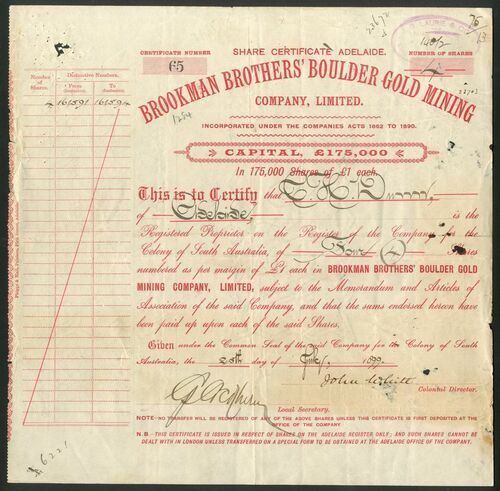 SHARE CERTIFICATE ADELAIDE.
CERTIFICATE NUMBER
65
NUMBER OF SHARES
4
BROOKMAN BROTHERS' BOULDER GOLD MINING
COMPANY, LIMITED.
INCORPORATED UNDER THE COMPANIES ACTS 1862 TO 1890.
CAPITAL, £175,000
In 175,000 Shares of £1 each.
Number of Shares.
Distinctive Numbers.
From (inclusive).
To (inclusive).
161591
161594
1254
This is to Certify that
of Adelaide, is the
Registered Proprietor on the Register of the Company for the
Colony of South Australia, of Four (4) Shares
numbered as per margin of £1 each in BROOKMAN BROTHERS' BOULDER GOLD
MINING COMPANY, LIMITED, subject to the Memorandum and Articles of
Association of the said Company, and that the sums endorsed hereon have
been paid up upon each of the said Shares.
Given under the Common Seal of the said Company for the Colony of South
Australia, the 20th day of July 1899.
Colonial Director.
Local Secretary.
NOTE—NO TRANSFER WILL BE REGISTERED OF ANY OF THE ABOVE SHARES UNLESS THIS CERTIFICATE IS FIRST DEPOSITED AT THE
OFFICE OF THE COMPANY.
N.B.—THIS CERTIFICATE IS ISSUED IN RESPECT OF SHARES ON THE ADELAIDE REGISTER ONLY; AND SUCH SHARES CANNOT BE
DEALT WITH IN LONDON UNLESS TRANSFERRED ON A SPECIAL FORM TO BE OBTAINED AT THE ADELAIDE OFFICE OF THE COMPANY.
6221